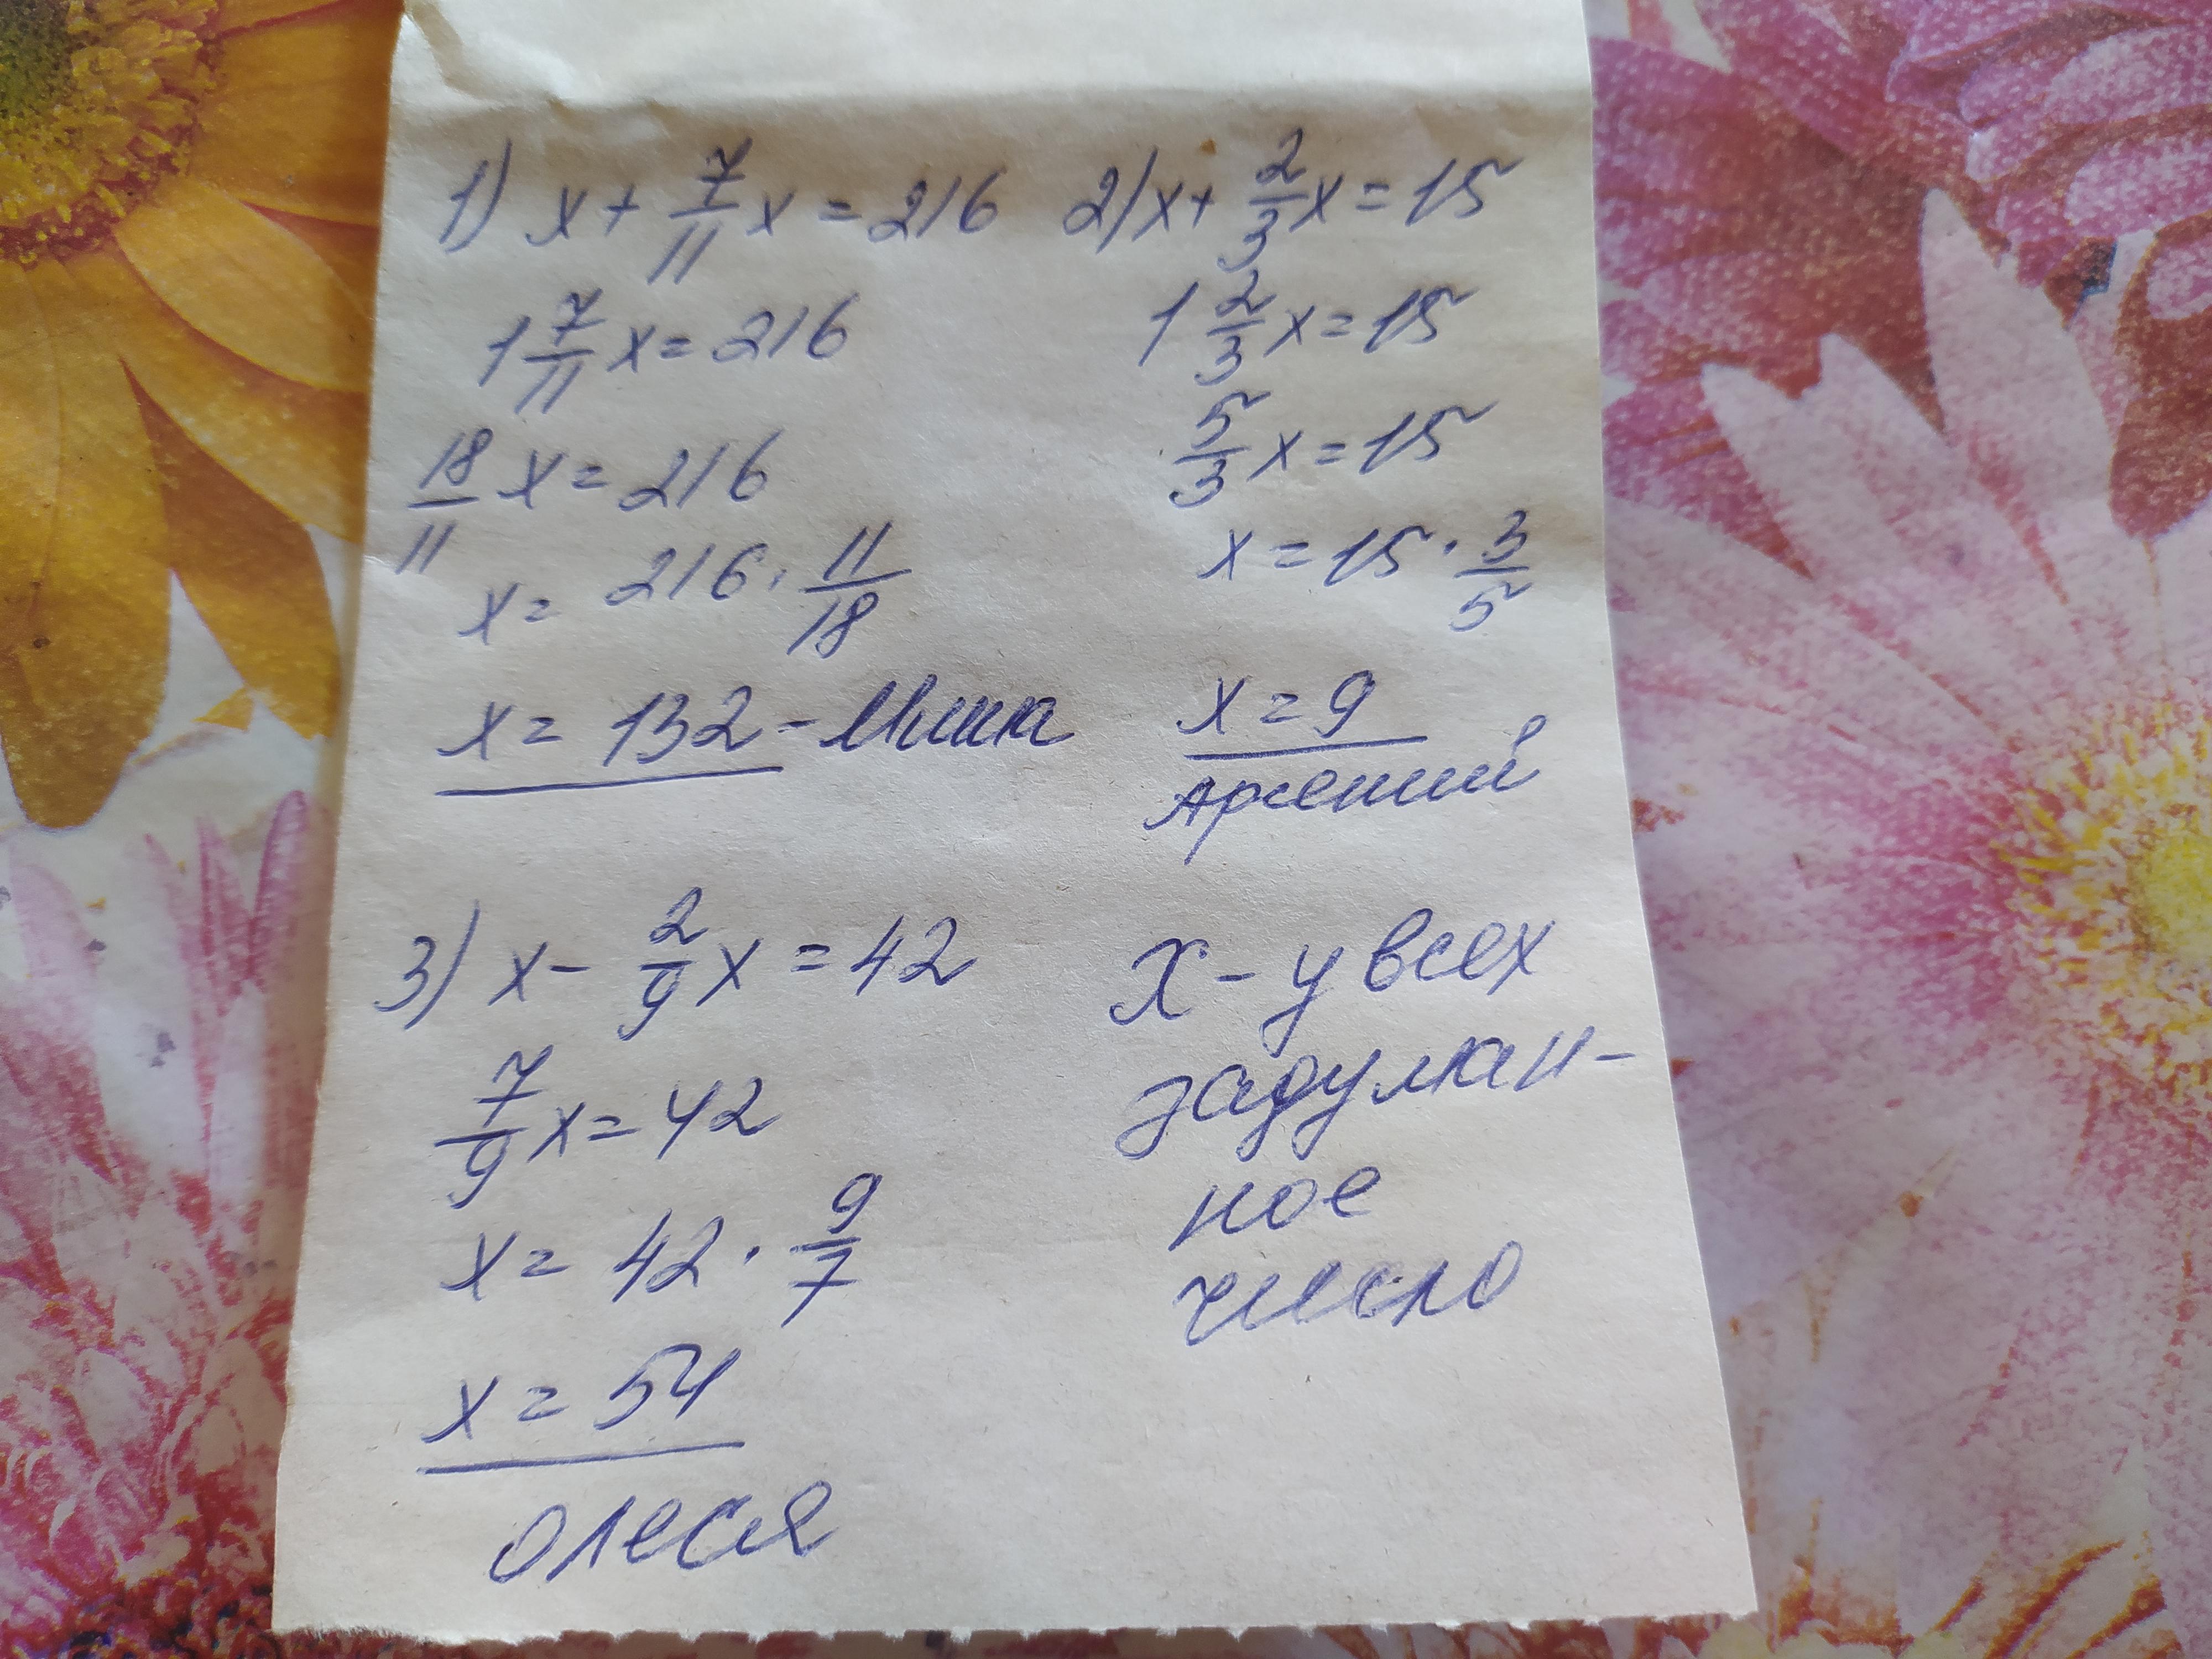 1) x + 7/11 x = 216
1 7/11 x = 216
18/11 x = 216
x = 216 · 11/18
x = 132 - Миша
2) x + 2/3 x = 15
1 2/3 x = 15
5/3 x = 15
x = 15 · 3/5
x = 9
Арсений
3) x - 2/9 x = 42
7/9 x = 42
x = 42 · 9/7
x = 54
Олеся
X - у всех
задуман-
ное
число